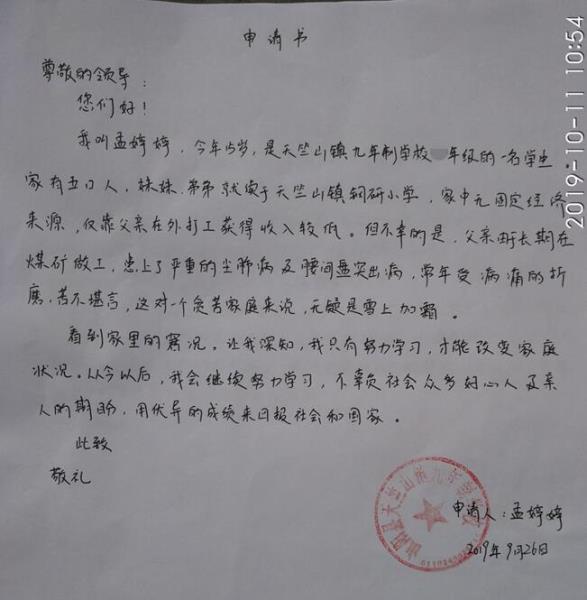 申请书
尊敬的领导：
您们好！
我叫孟婷婷，今年15岁，是天竺山镇九年制学校 年级的一名学生。
家有五口人，妹妹、弟弟就读于天竺山镇 小学，家中无固定经济
来源，仅靠父亲在外打工获得收入较低。但不幸的是，父亲由于长期在
煤矿做工，患上了严重的尘肺病及腰间盘突出病，常年受病痛的折
磨，苦不堪言，这对一个贫苦家庭来说，无疑是雪上加霜。
看到家里的窘况。让我深知，我只有努力学习，才能改变家庭
状况。从今以后，我会继续努力学习，不辜负社会众多好心人及亲
人的期盼，用优异的成绩来回报社会和国家。
此致
敬礼
申请人：孟婷婷
2019年9月26日
天竺山镇九年制学校
2019-10-11 10:54